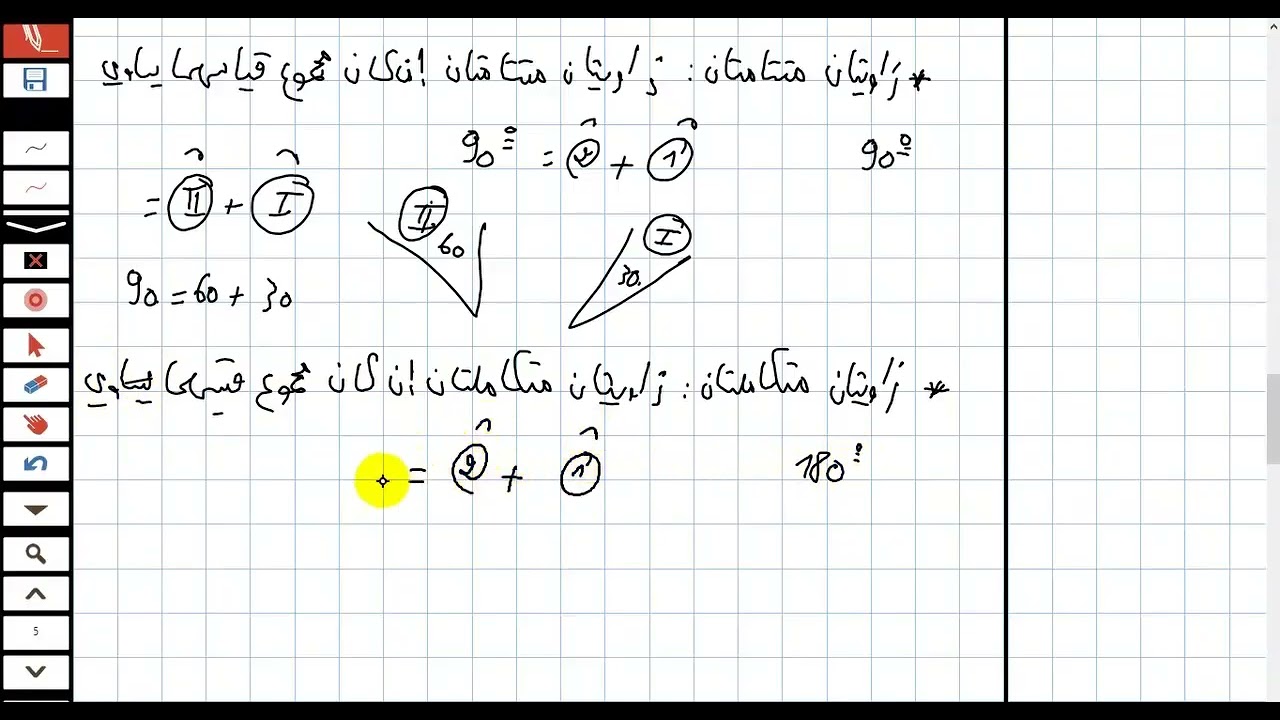 * زاويتان متتامتان : زاويتان متتامتان إن كان مجموع قياسهما يساوي
90° = 2 + 1 90°
= II + I
II 60 I 30
90 = 60 + 30
* زاويتان متكاملتان : زاويتان متكاملتان إن كان مجموع قيسهما يساوي
= 2 + 1 180°
5